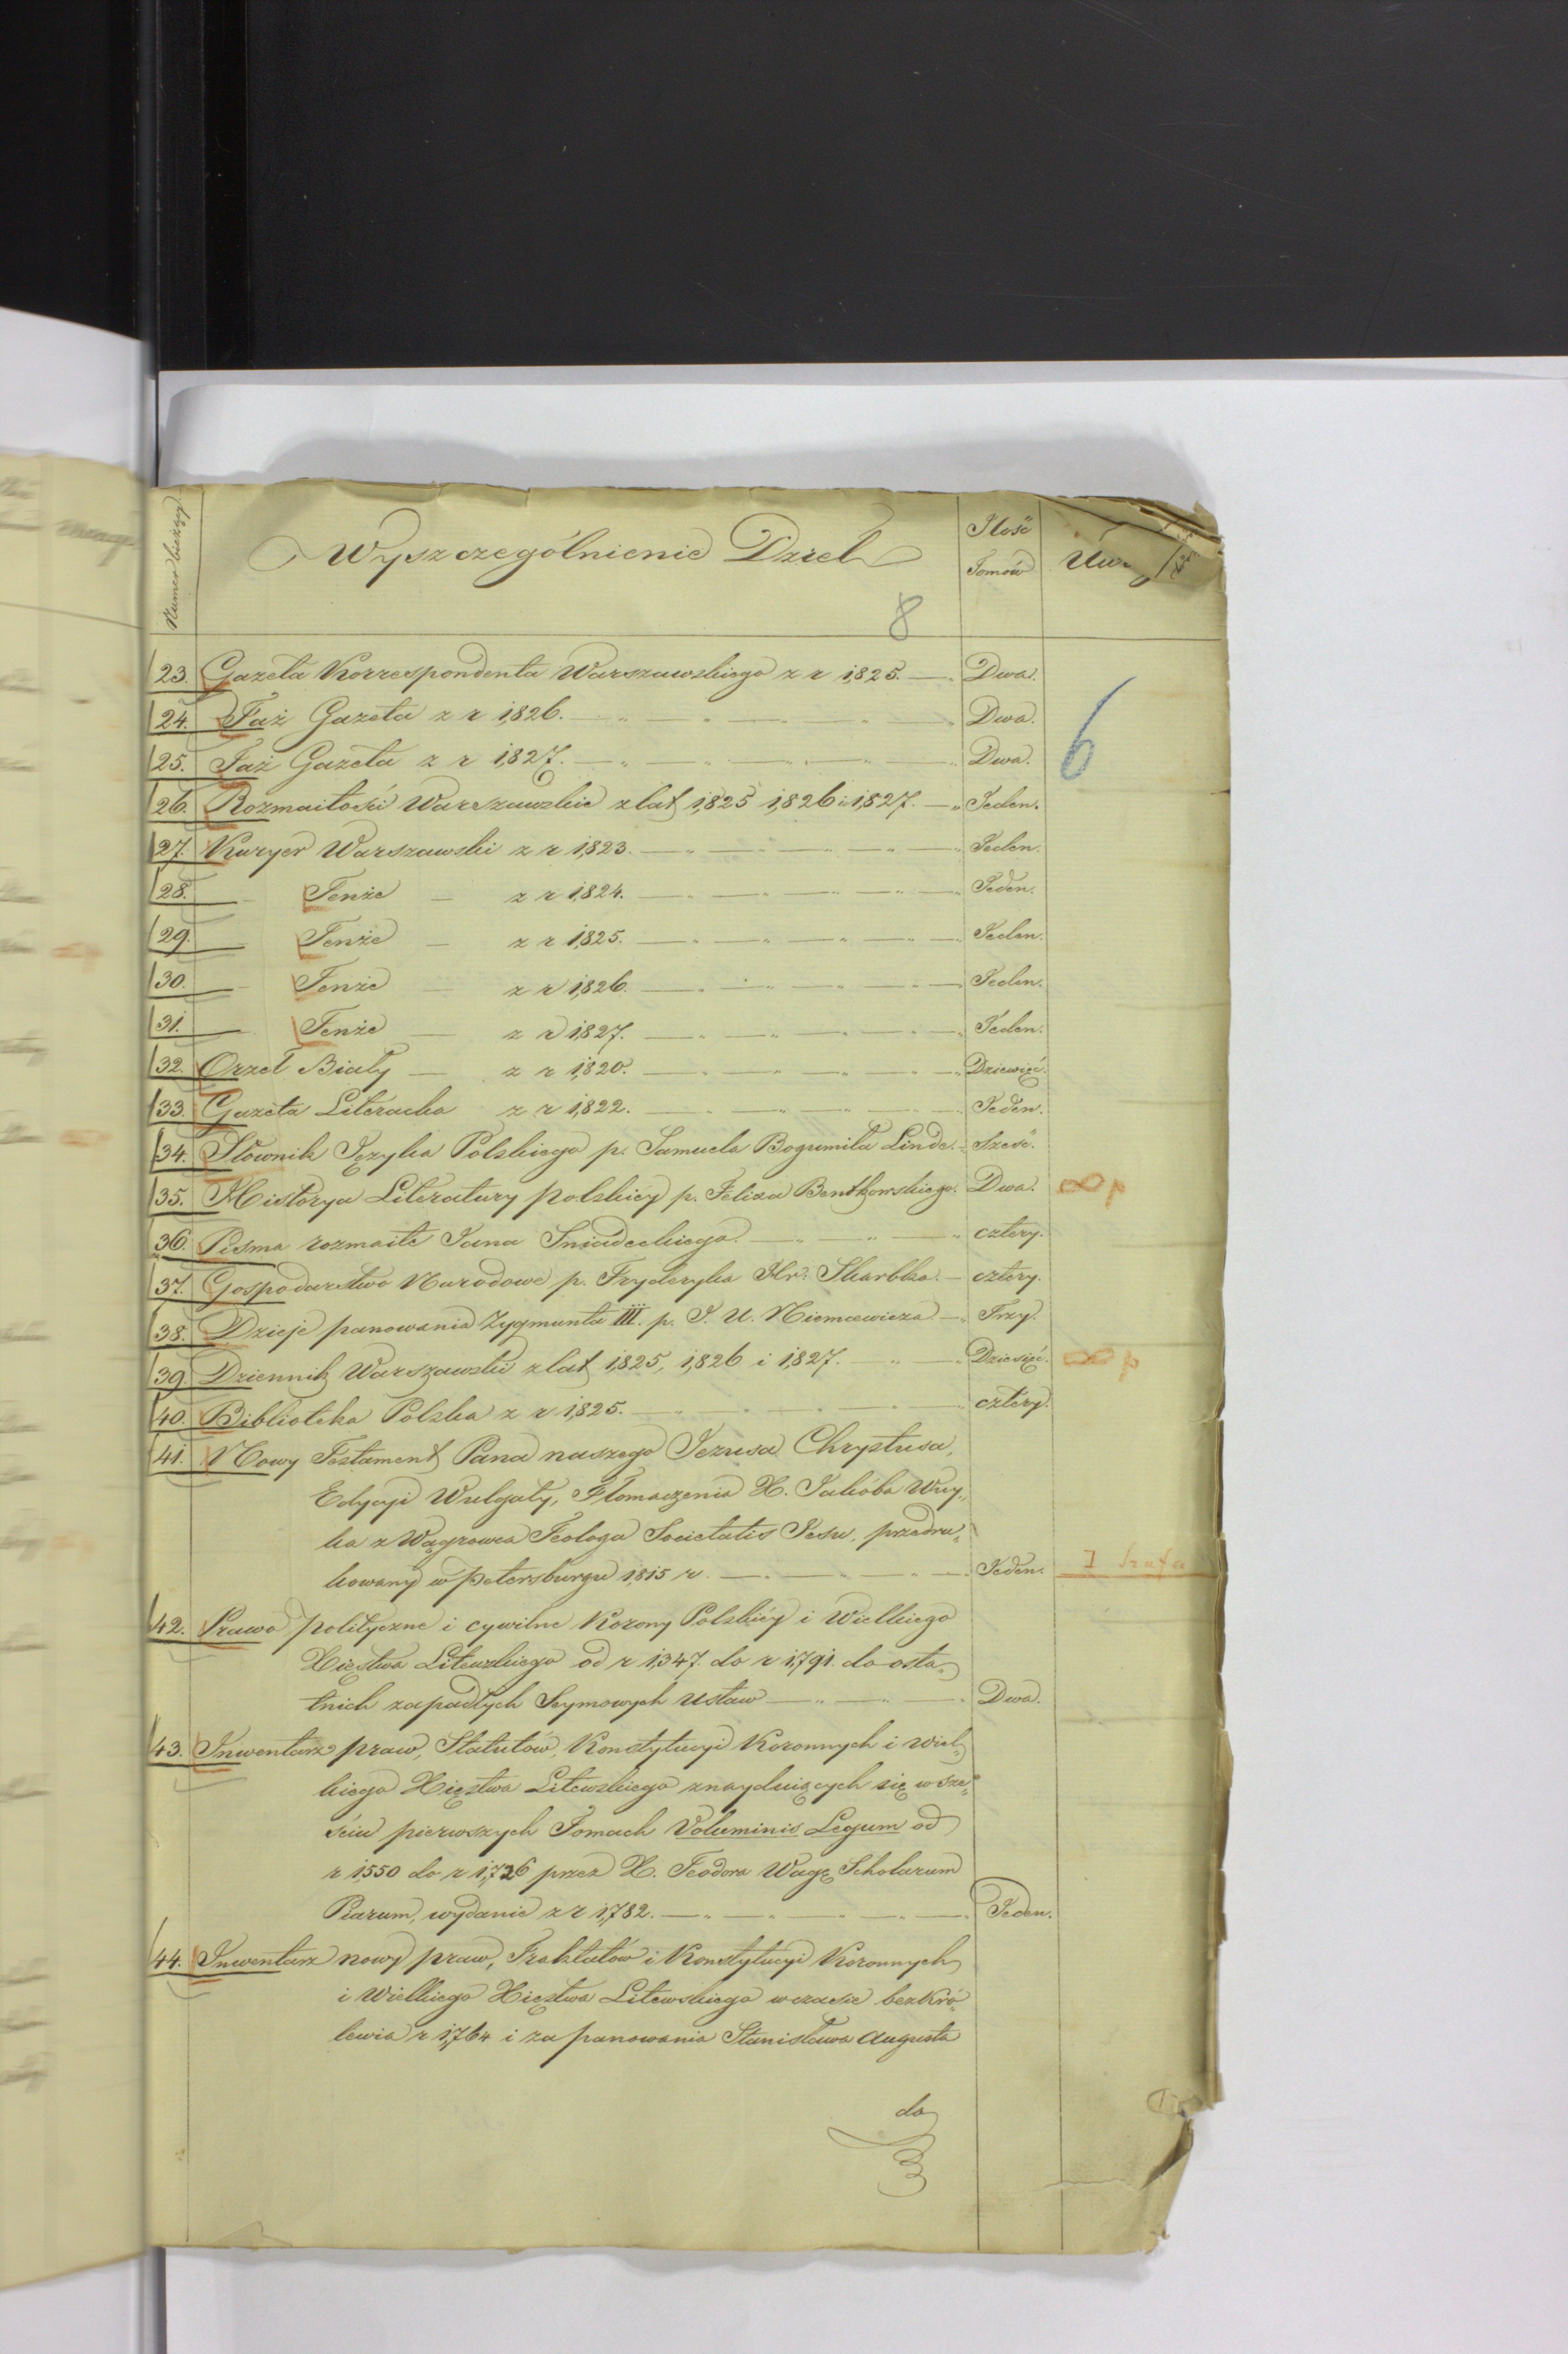 Numer bieżący Wyszczególnienie Dzieł Ilość Tomów
8
23. Gazeta Korrespondenta Warszawskiego z r 1,825. Dwa.
24. Taż Gazeta z r 1,826. Dwa.
6
25. Taż Gazeta z r 1,827. Dwa.
26. Rozmaitości Warszawskie z lat 1,825 1,826 i 1,827. Jeden.
27. Kuryer Warszawski z r 1,823. Jeden.
28. Tenże z r 1,824. Jeden.
29. Tenże z r 1,825. Jeden.
30. Tenże z r 1,826. Jeden.
31. Tenże z r 1,827. Jeden.
32. Orzeł Biały z r 1,820. Dziewięć.
33. Gazeta Literacka z r 1,822. Jeden.
34. Słownik Języka Polskiego p. Samuela Bogumiła Linde. Sześć.
35. Historya Literatury polskiéy p. Felixa Bentkowskiego. Dwa.
36. Pisma rozmaite Jana Sniadeckiego. cztery.
37. Gospodarstwo Narodowe p. Fryderyka Hr. Skarbka. cztery.
38. Dzieje panowania Zygmunta III. p. J. U. Niemcewicza Trzy.
39. Dziennik Warszawski z lat 1,825, 1,826 i 1,827. Dziesięć.
40. Biblioteka Polska z r 1,825. cztéry.
41. Nowy Testament Pana naszego Jezusa Chrystusa,
Edycyi Wulgaty, Tłomaczenia X. Jakóba Wuy„
ka z Wągrowca Teologa Societatis Jesu, przedru„
kowany w Petersburgu 1,815 r. Jeden. I Szafa
42. Prawo polityczne i cywilne Korony Polskiéy i Wielkiego
Xięstwa Litewskiego od r 1,347. do r 1,791. do osta„
tnich zapadłych Seymowych Ustaw Dwa.
43. Inwentarz praw, Statutów, Konstytucyi Koronnych i Wiel„
kiego Xięstwa Litewskiego znayduiących się w sze„
ściu pierwszych Tomach Voluminis Legum od
r 1,550 do r 1,726 przez X. Teodora Wagę Scholarum
Piarum, wydanie z r 1,782. Jeden.
44. Inwentarz nowy praw, Traktatów i Konstytucyi Koronnych
i Wielkiego Xięstwa Litewskiego w czasie bezkró„
lewia r 1,764 i za panowania Stanisława Augusta
do